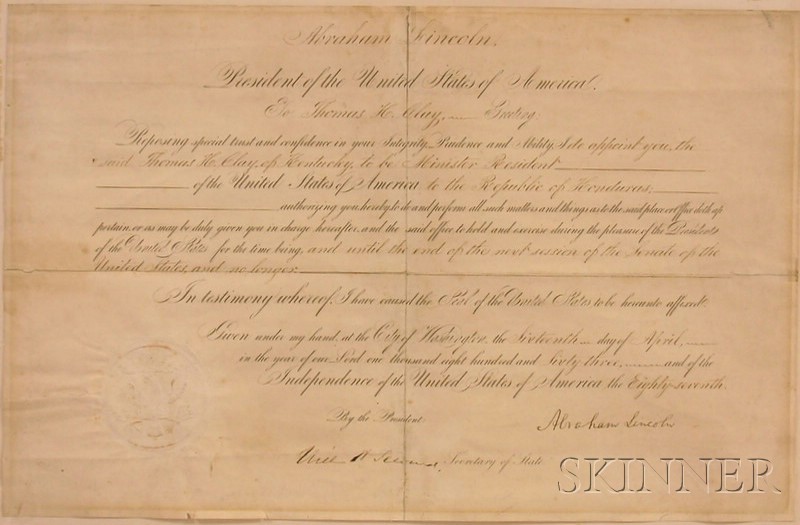 Abraham Lincoln.
President of the United States of America.
To Thomas H. Clay, Greeting
Reposing special trust and confidence in your Integrity, Prudence and Ability, I do appoint you, the
said Thomas H. Clay, of Kentucky, to be Minister Resident
of the United States of America to the Republic of Honduras;
authorizing you, hereby, to do and perform all such matters and things as to the said place or Office doth ap-
pertain, or as may be duly given you in charge hereafter, and the said office to hold and exercise during the pleasure of the President
of the United States for the time being, and until the end of the next session of the Senate of the
United States, and no longer.
In testimony whereof, I have caused the Seal of the United States to be hereunto affixed.
Given under my hand, at the City of Washington, the Sixteenth day of April,
in the year of our Lord one thousand eight hundred and Sixty three, and of the
Independence of the United States of America, the Eighty-seventh.
By the President:
Abraham Lincoln
William H. Seward, Secretary of State
SKINNER